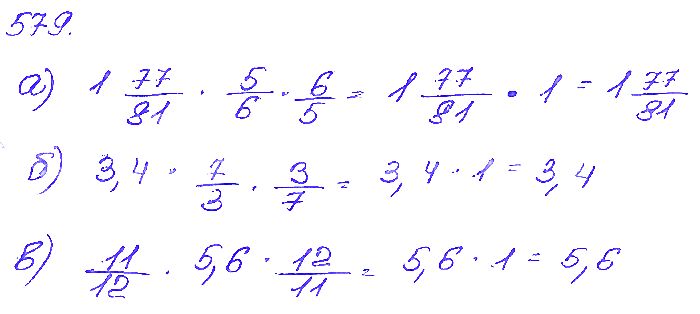 579.
а) 1 77/81 · 5/6 · 6/5 = 1 77/81 · 1 = 1 77/81
б) 3,4 · 7/3 · 3/7 = 3,4 · 1 = 3,4
в) 11/12 · 5,6 · 12/11 = 5,6 · 1 = 5,6